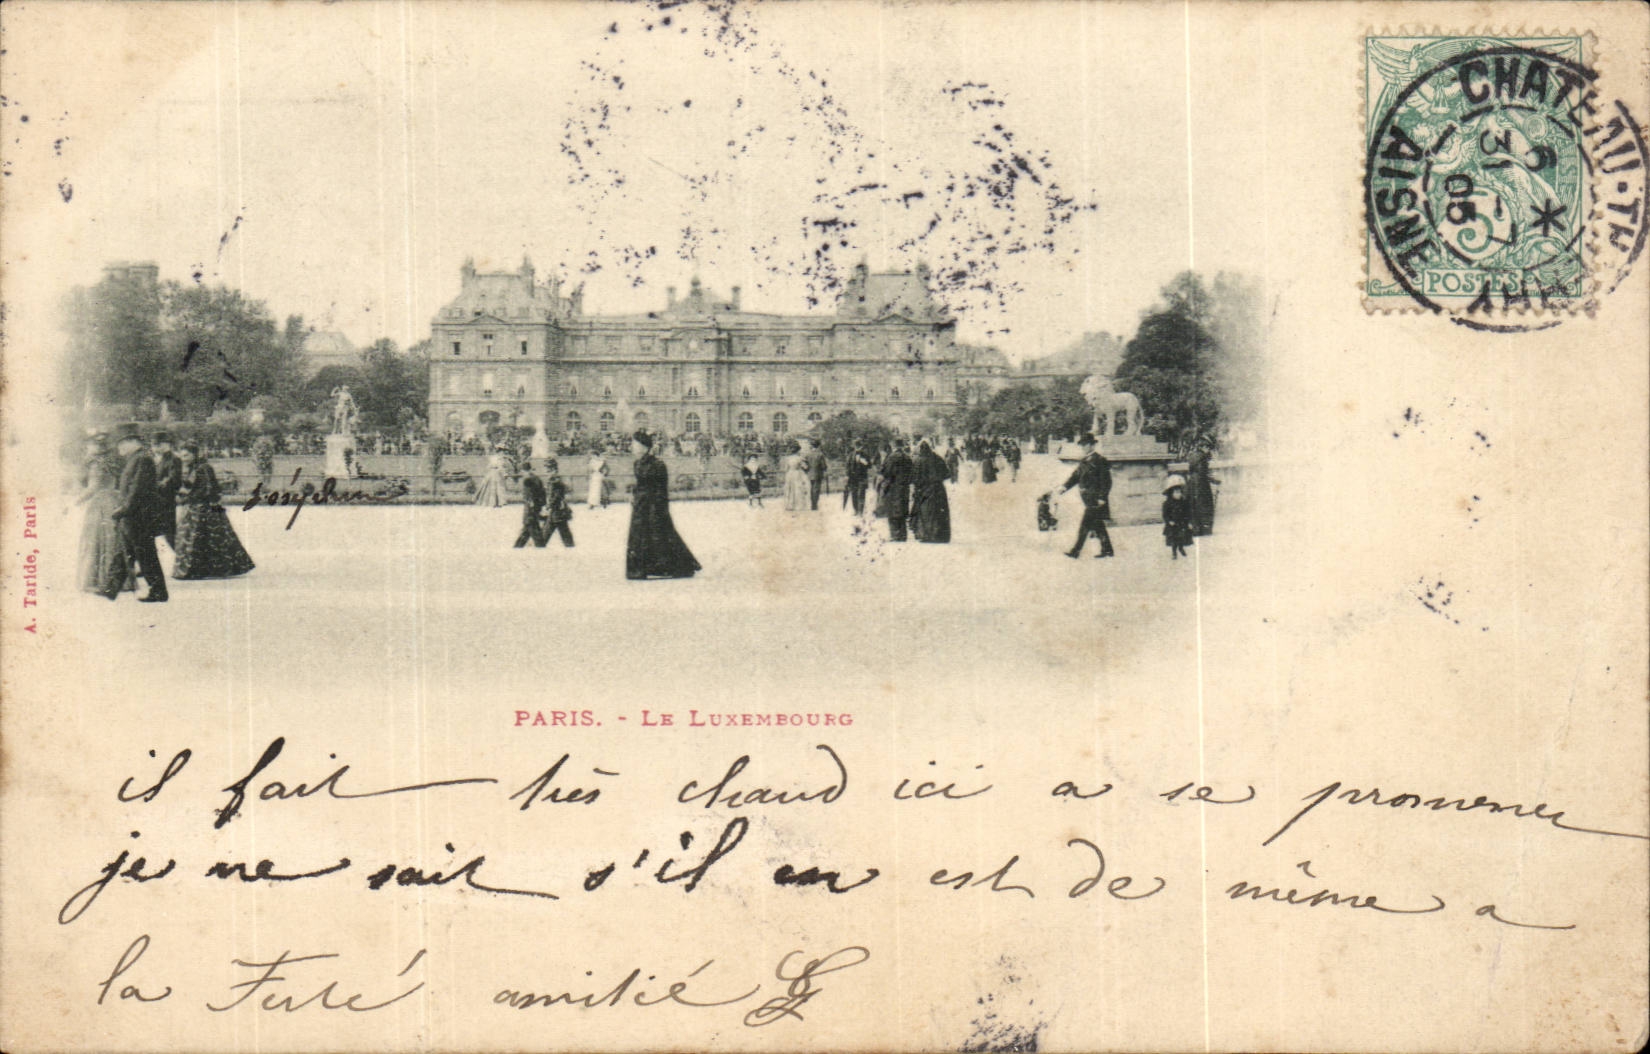 CHATEAU-THIERRY
AISNE
6 *
31 -7
05
5
POSTES
A. Taride, Paris
Joséphine
PARIS. - LE LUXEMBOURG
il fait très chaud ici a se promener
je ne sait s'il en est de même a
la Ferté amitié